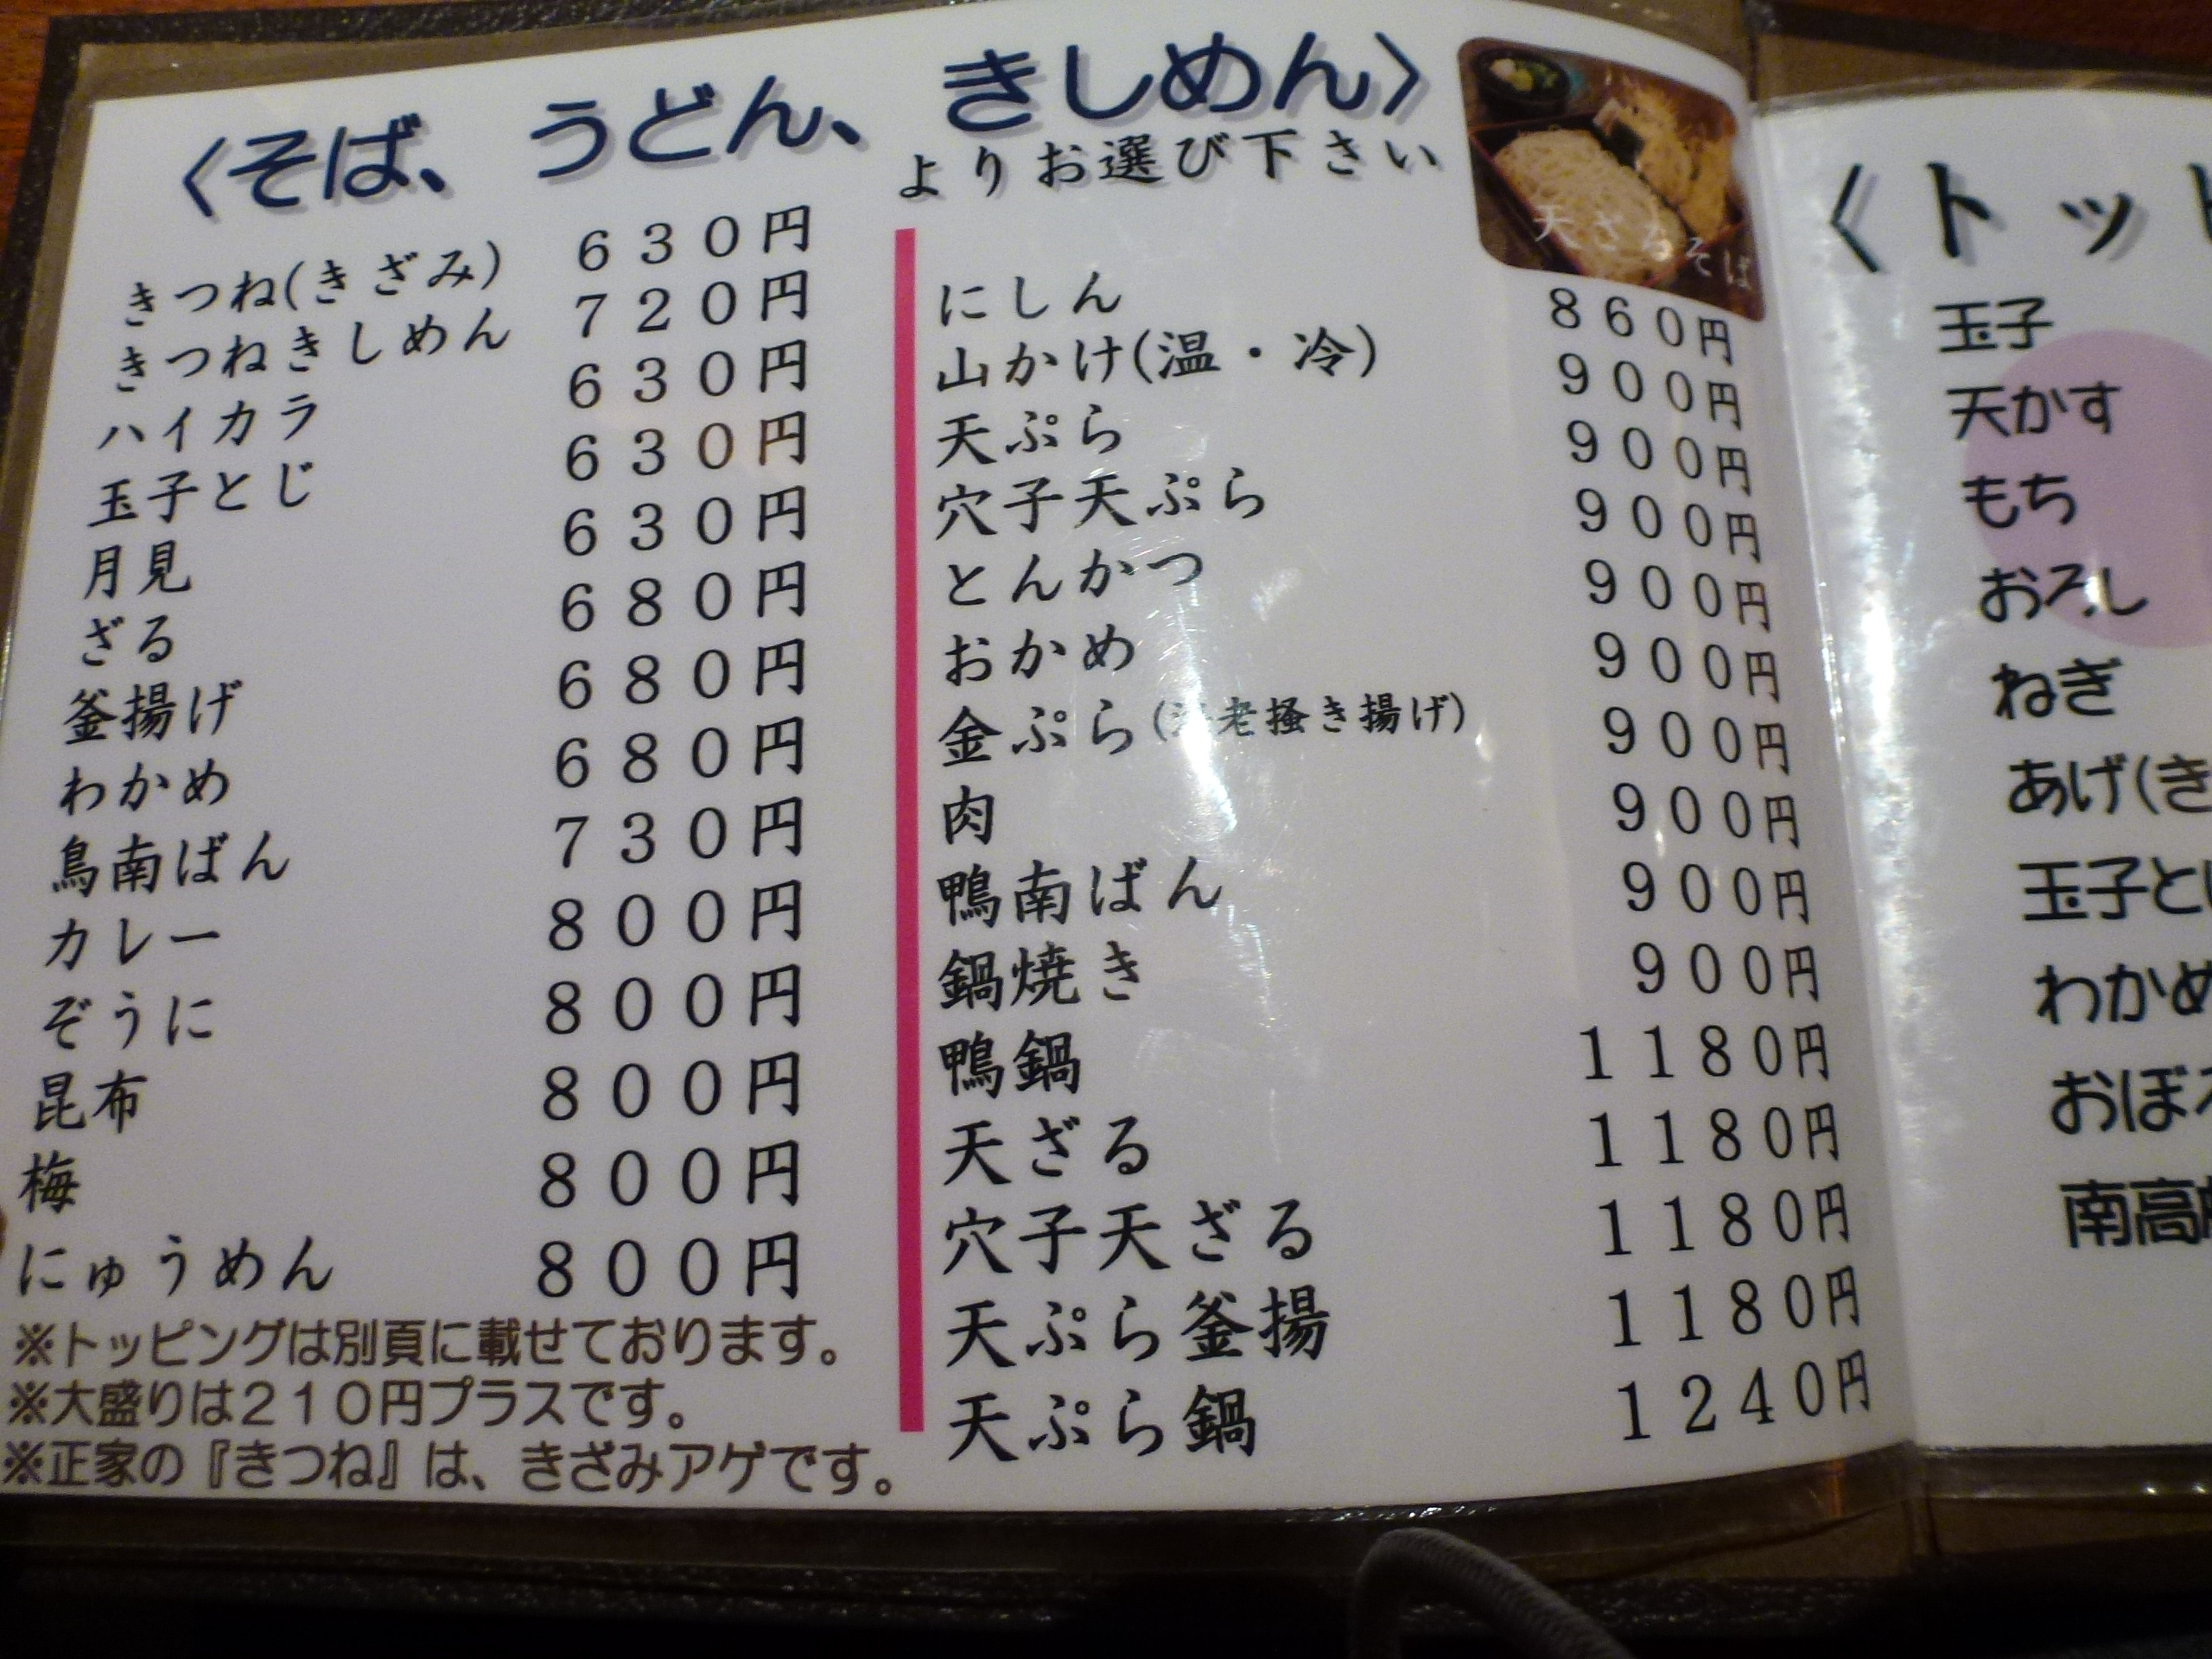 〈そば、うどん、きしめん〉
よりお選び下さい
天ざるそば
きつね(きざみ) 630円
きつねきしめん 720円
ハイカラ 630円
玉子とじ 630円
月見 630円
ざる 680円
釜揚げ 680円
わかめ 680円
鳥南ばん 730円
カレー 800円
ぞうに 800円
昆布 800円
梅 800円
にゅうめん 800円
※トッピングは別頁に載せております。
※大盛りは210円プラスです。
※正家の『きつね』は、きざみアゲです。
にしん 860円
山かけ(温・冷) 900円
天ぷら 900円
穴子天ぷら 900円
とんかつ 900円
おかめ 900円
金ぷら(海老掻き揚げ) 900円
肉 900円
鴨南ばん 900円
鍋焼き 900円
鴨鍋 1180円
天ざる 1180円
穴子天ざる 1180円
天ぷら釜揚 1180円
天ぷら鍋 1240円
〈トッ
玉子
天かす
もち
おろし
ねぎ
あげ(き
玉子と
わかめ
おぼろ
南高